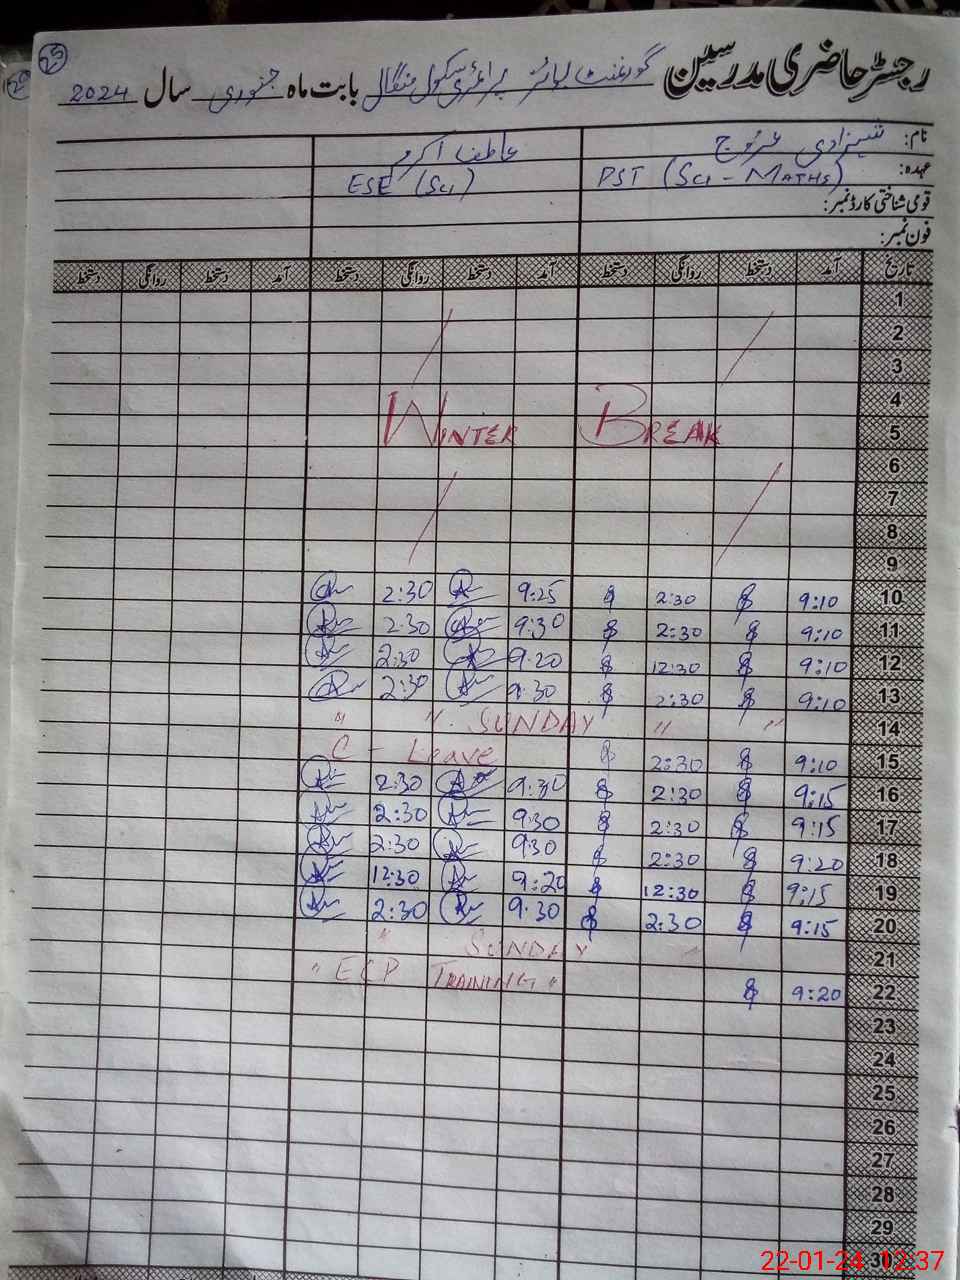 25
رجسٹر حاضری مدرسین گورنمنٹ بوائز پرائمری سکول منگال بابت ماہ جنوری سال 2024
نام: شہزادی عروج عاطف اکرم
عہدہ: PST (Sci - MATHS) ESE (Sci)
قومی شناختی کارڈ نمبر:
فون نمبر:
تاریخ آمد دستخط روانگی دستخط آمد دستخط روانگی دستخط آمد دستخط روانگی دستخط
1
2
3
4
5 WINTER BREAK
6
7
8
9
10 9:10 2:30 9:25 2:30
11 9:10 2:30 9:30 2:30
12 9:10 12:30 9:20 2:30
13 9:10 2:30 9:30 2:30
14 " " SUNDAY " "
15 9:10 2:30 C - Leave
16 9:15 2:30 9:30 2:30
17 9:15 2:30 9:30 2:30
18 9:20 2:30 9:30 2:30
19 9:15 12:30 9:20 12:30
20 9:15 2:30 9:30 2:30
21 " SUNDAY "
22 9:20 " ECP TRAINING "
23
24
25
26
27
28
29
22-01-24 12:37